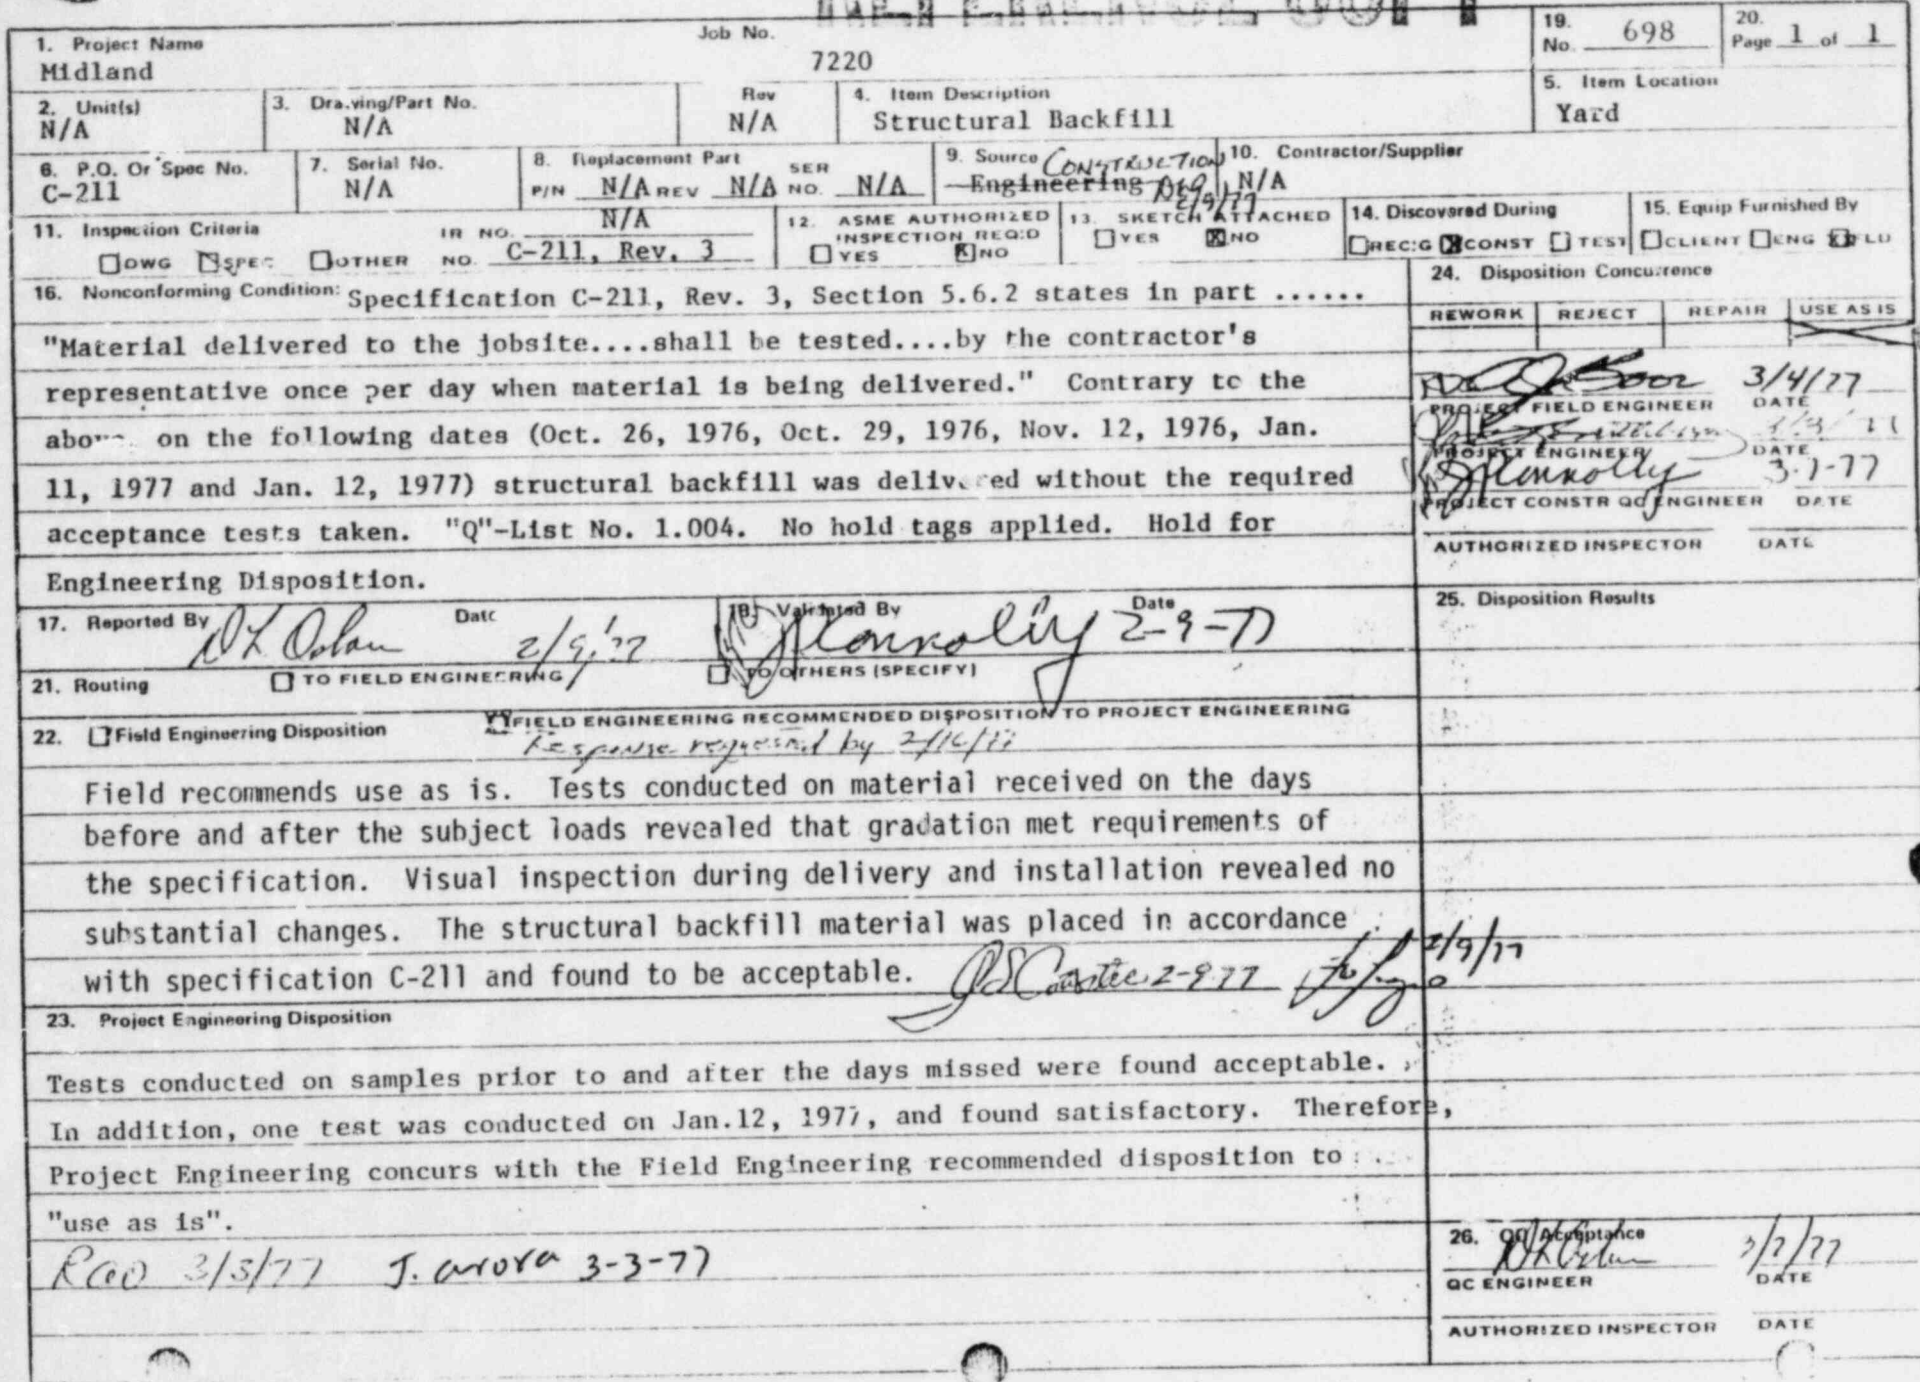 1. Project Name Job No. 19. No. 698 20. Page 1 of 1
Midland 7220
2. Unit(s) 3. Drawing/Part No. Rev 4. Item Description 5. Item Location
N/A N/A N/A Structural Backfill Yard
6. P.O. Or Spec No. 7. Serial No. 8. Replacement Part 9. Source CONSTRUCTION 10. Contractor/Supplier
C-211 N/A P/N N/A REV N/A SER NO. N/A Engineering N/A
2/9/77
11. Inspection Criteria IR NO. N/A 12. ASME AUTHORIZED INSPECTION REQ'D 13. SKETCH ATTACHED 14. Discovered During 15. Equip Furnished By
DWG SPEC OTHER NO. C-211, Rev. 3 YES NO YES NO REC'G CONST TEST CLIENT ENG FLD
16. Nonconforming Condition: Specification C-211, Rev. 3, Section 5.6.2 states in part ......
"Material delivered to the jobsite....shall be tested....by the contractor's
representative once per day when material is being delivered." Contrary to the
above on the following dates (Oct. 26, 1976, Oct. 29, 1976, Nov. 12, 1976, Jan.
11, 1977 and Jan. 12, 1977) structural backfill was delivered without the required
acceptance tests taken. "Q"-List No. 1.004. No hold tags applied. Hold for
Engineering Disposition.
24. Disposition Concurrence
REWORK REJECT REPAIR USE AS IS
3/4/77
PROJECT FIELD ENGINEER DATE
PROJECT ENGINEER DATE
Connolly 3-7-77
PROJECT CONSTR QC ENGINEER DATE
AUTHORIZED INSPECTOR DATE
17. Reported By Date 2/9/77 18. Validated By Connolly Date 2-9-77
25. Disposition Results
21. Routing TO FIELD ENGINEERING TO OTHERS (SPECIFY)
FIELD ENGINEERING RECOMMENDED DISPOSITION TO PROJECT ENGINEERING
22. Field Engineering Disposition Response requested by 2/16/77
Field recommends use as is. Tests conducted on material received on the days
before and after the subject loads revealed that gradation met requirements of
the specification. Visual inspection during delivery and installation revealed no
substantial changes. The structural backfill material was placed in accordance
with specification C-211 and found to be acceptable. 2-9-77 2/9/77
23. Project Engineering Disposition
Tests conducted on samples prior to and after the days missed were found acceptable.
In addition, one test was conducted on Jan.12, 1977, and found satisfactory. Therefore,
Project Engineering concurs with the Field Engineering recommended disposition to
"use as is".
Rao 3/3/77 J. arora 3-3-77
26. QC Acceptance
QC ENGINEER DATE
AUTHORIZED INSPECTOR DATE